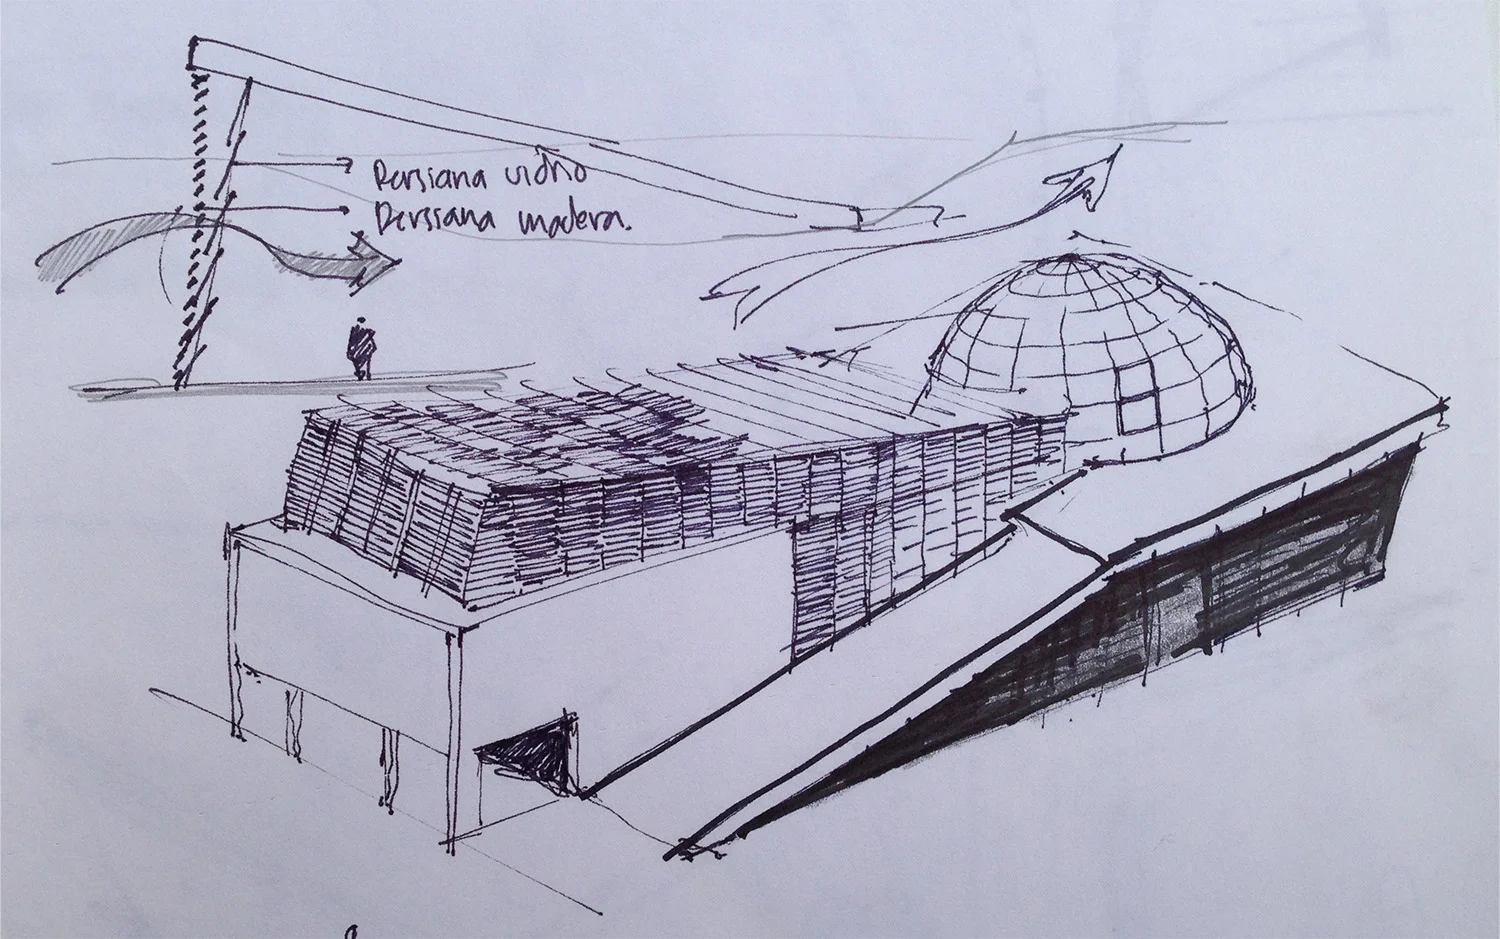 Persiana vidrio
Perssana madera.